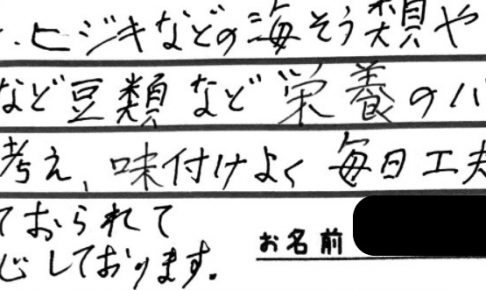 ヒジキなどの海そう類や
など豆類など栄養のバ
考え、味付けよく毎日工夫
ておられて
じしております。
お名前